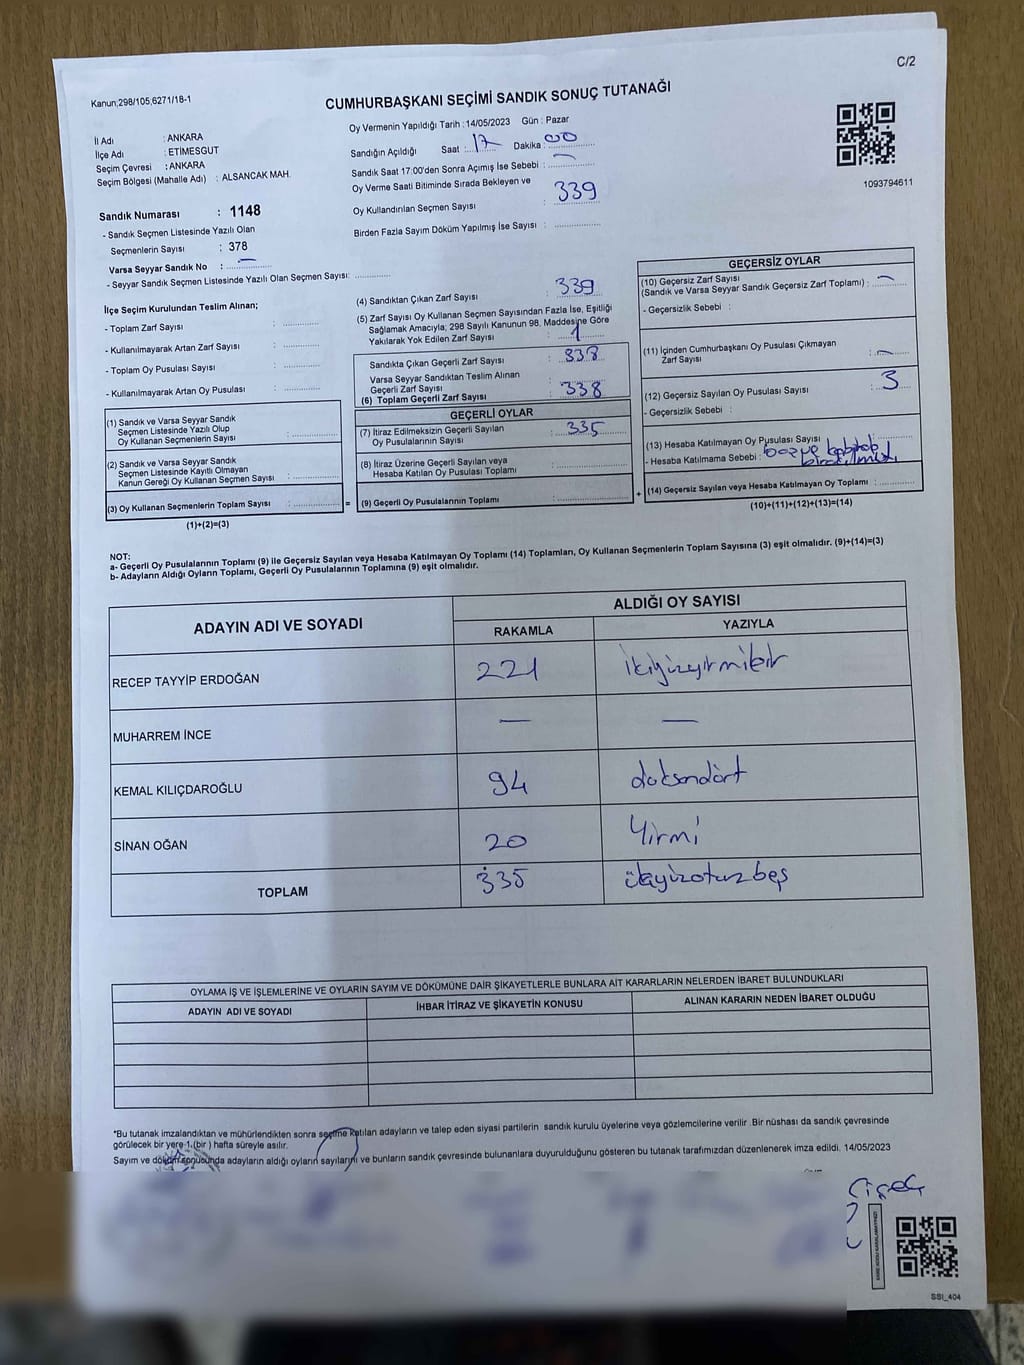 C/2
Kanun;298/105;6271/18-1
CUMHURBAŞKANI SEÇİMİ SANDIK SONUÇ TUTANAĞI
İl Adı : ANKARA
İlçe Adı : ETİMESGUT
Seçim Çevresi : ANKARA
Seçim Bölgesi (Mahalle Adı) : ALSANCAK MAH.
Sandık Numarası : 1148
- Sandık Seçmen Listesinde Yazılı Olan
Seçmenlerin Sayısı : 378
Varsa Seyyar Sandık No : —
- Seyyar Sandık Seçmen Listesinde Yazılı Olan Seçmen Sayısı: ..............
Oy Vermenin Yapıldığı Tarih : 14/05/2023 Gün : Pazar
Sandığın Açıldığı Saat : 17 Dakika : 00
Sandık Saat 17:00'den Sonra Açımış İse Sebebi : —
Oy Verme Saati Bitiminde Sırada Bekleyen ve
Oy Kullandırılan Seçmen Sayısı : 339
Birden Fazla Sayım Döküm Yapılmış İse Sayısı : ..............
1093794611
İlçe Seçim Kurulundan Teslim Alınan;
- Toplam Zarf Sayısı : ..............
- Kullanılmayarak Artan Zarf Sayısı : ..............
- Toplam Oy Pusulası Sayısı : ..............
- Kullanılmayarak Artan Oy Pusulası : ..............
(1) Sandık ve Varsa Seyyar Sandık
Seçmen Listesinde Yazılı Olup
Oy Kullanan Seçmenlerin Sayısı : ..............
(2) Sandık ve Varsa Seyyar Sandık
Seçmen Listesinde Kayıtlı Olmayan
Kanun Gereği Oy Kullanan Seçmen Sayısı : ..............
(3) Oy Kullanan Seçmenlerin Toplam Sayısı : .............. =
(1)+(2)=(3)
(4) Sandıktan Çıkan Zarf Sayısı : 339
(5) Zarf Sayısı Oy Kullanan Seçmen Sayısından Fazla İse, Eşitliği
Sağlamak Amacıyla; 298 Sayılı Kanunun 98. Maddesine Göre
Yakılarak Yok Edilen Zarf Sayısı : 1
Sandıkta Çıkan Geçerli Zarf Sayısı : 338
Varsa Seyyar Sandıktan Teslim Alınan
Geçerli Zarf Sayısı
(6) Toplam Geçerli Zarf Sayısı : 338
GEÇERLİ OYLAR
(7) İtiraz Edilmeksizin Geçerli Sayılan
Oy Pusulalarının Sayısı : 335
(8) İtiraz Üzerine Geçerli Sayılan veya
Hesaba Katılan Oy Pusulası Toplamı : ..............
(9) Geçerli Oy Pusulalarının Toplamı : .............. +
GEÇERSİZ OYLAR
(10) Geçersiz Zarf Sayısı
(Sandık ve Varsa Seyyar Sandık Geçersiz Zarf Toplamı) : —
- Geçersizlik Sebebi :
(11) İçinden Cumhurbaşkanı Oy Pusulası Çıkmayan
Zarf Sayısı : —
(12) Geçersiz Sayılan Oy Pusulası Sayısı : 3
- Geçersizlik Sebebi :
(13) Hesaba Katılmayan Oy Pusulası Sayısı : ..............
- Hesaba Katılmama Sebebi :
(14) Geçersiz Sayılan veya Hesaba Katılmayan Oy Toplamı : ..............
(10)+(11)+(12)+(13)=(14)
NOT:
a- Geçerli Oy Pusulalarının Toplamı (9) ile Geçersiz Sayılan veya Hesaba Katılmayan Oy Toplamı (14) Toplamları, Oy Kullanan Seçmenlerin Toplam Sayısına (3) eşit olmalıdır. (9)+(14)=(3)
b- Adayların Aldığı Oyların Toplamı, Geçerli Oy Pusulalarının Toplamına (9) eşit olmalıdır.
ADAYIN ADI VE SOYADI
ALDIĞI OY SAYISI
RAKAMLA YAZIYLA
RECEP TAYYİP ERDOĞAN 221 ikiyüzyirmibir
MUHARREM İNCE — —
KEMAL KILIÇDAROĞLU 94 doksandört
SİNAN OĞAN 20 Yirmi
TOPLAM 335 üçyüzotuzbeş
OYLAMA İŞ VE İŞLEMLERİNE VE OYLARIN SAYIM VE DÖKÜMÜNE DAİR ŞİKAYETLERLE BUNLARA AİT KARARLARIN NELERDEN İBARET BULUNDUKLARI
ADAYIN ADI VE SOYADI İHBAR İTİRAZ VE ŞİKAYETİN KONUSU ALINAN KARARIN NEDEN İBARET OLDUĞU
*Bu tutanak imzalandıktan ve mühürlendikten sonra seçime katılan adayların ve talep eden siyasi partilerin sandık kurulu üyelerine veya gözlemcilerine verilir .Bir nüshası da sandık çevresinde
görülecek bir yere 1.(bir ) hafta süreyle asılır.
Sayım ve döküm sonucunda adayların aldığı oyların sayılarını ve bunların sandık çevresinde bulunanlara duyurulduğunu gösteren bu tutanak tarafımızdan düzenlenerek imza edildi. 14/05/2023
SSI_404